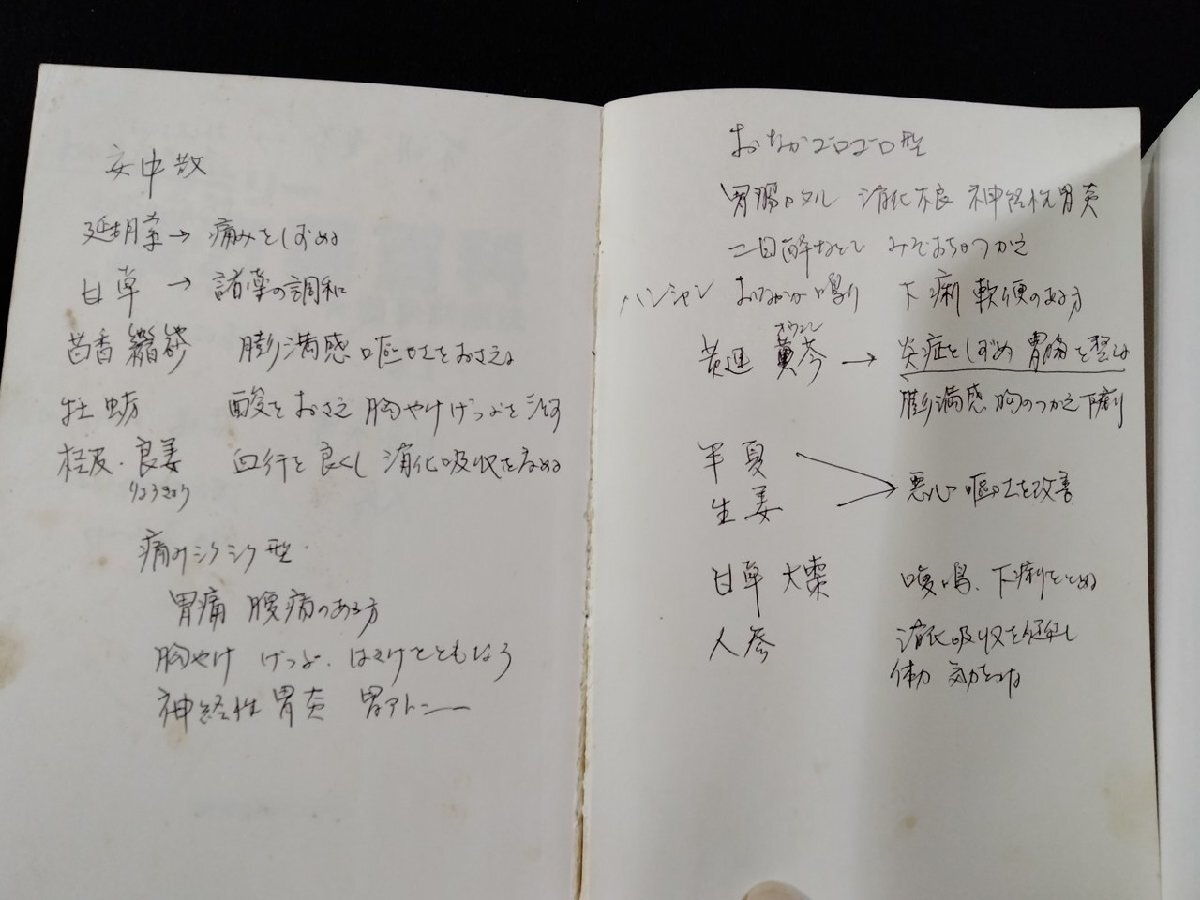 安中散
延胡索→ 痛みをしずめ
甘草 → 諸薬の調和
茴香 縮砂 膨満感 嘔吐をおさえる
牡蛎 酸をおさえ 胸やけげっぷを
桂皮・良姜 血行を良くし 消化吸収を高める
りょうきょう
痛みシクシク型
胃痛 腰痛のある方
胸やけ げっぷ、はきけをともなう
神経性胃炎 胃アトニー
おなかゴロゴロ型
胃腸カタル 消化不良 神経性胃炎
二日酔 みぞおちのつかえ
ハンシャン おなかが鳴り 下痢 軟便のある方
オウゴン
黄連 黄芩 → 炎症をしずめ 胃腸を整え
膨満感 胸のつかえ 下痢
半夏
生姜
悪心 嘔吐を改善
甘草 大棗 腹鳴、下痢をとめる
人参 消化吸収を
体力 気力を